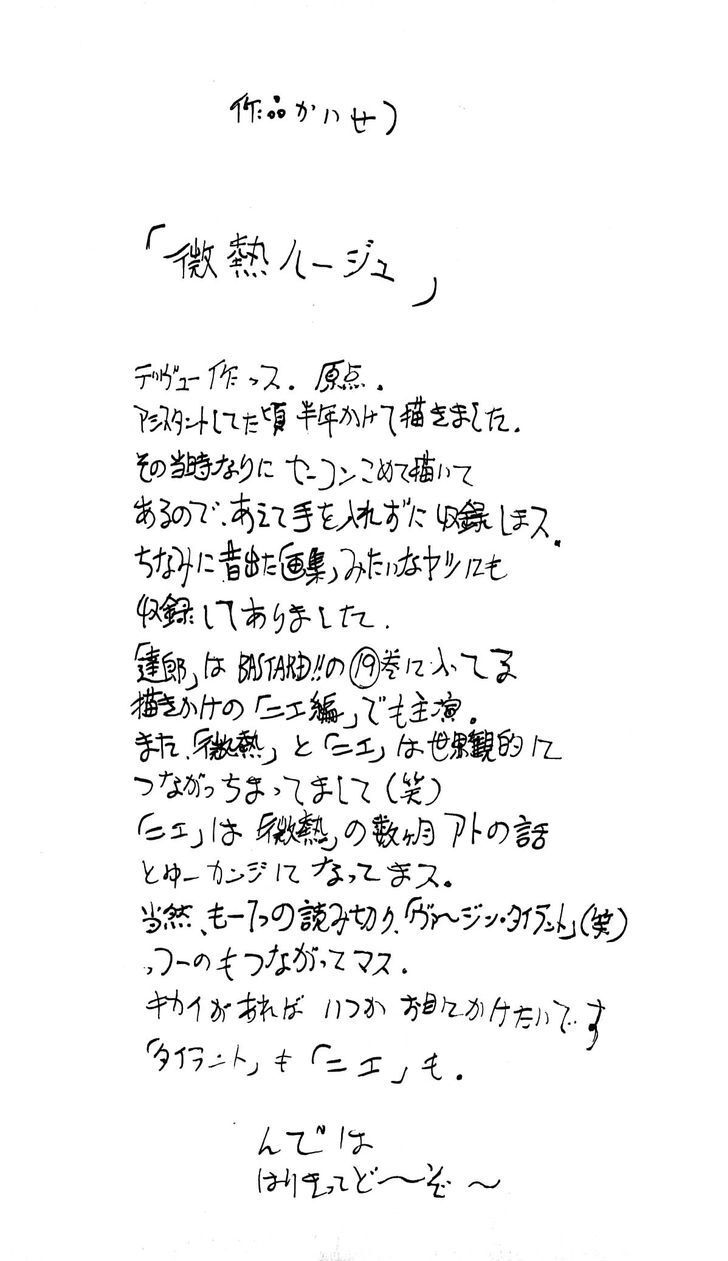 作品かいせつ
「微熱ルージュ」
デヴュー作っス．原点．
アシスタントしてた頃 半年かけて描きました．
その当時なりに セーコンこめて描いて
あるので、あえて手を入れずに 収録しまス．
ちなみに昔出た「画集」みたいなヤツにも
収録してありました．
「達郎」は BASTARD!!の⑲巻に入ってる
描きかけの「ニエ編」でも主演．
また、「微熱」と「ニエ」は世界観的に
つながっちまってまして（笑）
「ニエ」は「微熱」の数ヶ月アトの話
とゆーカンジになってまス。
当然、も一つの読み切り、「ヴァージン・タイラント」（笑）
っつーのもつながってマス．
キカイがあれば いつか お目にかけたいです
「タイラント」も「ニエ」も．
んでは
はりきってど〜ぞ〜